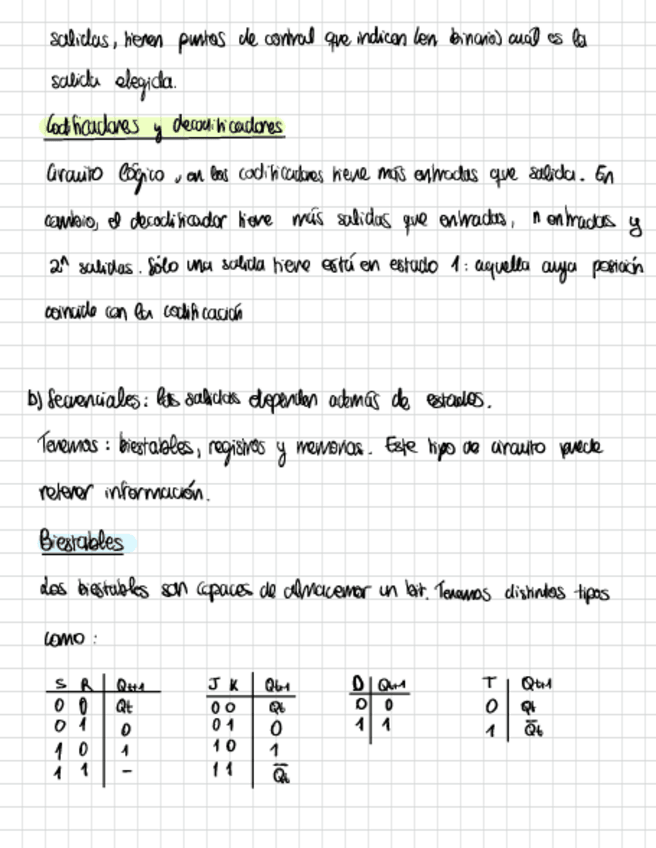 salidas, tienen puntos de control que indican (en binario) cuál es la
salida elegida.
Codificadores y decodificadores
Circuito lógico, en los codificadores tiene más entradas que salida. En
cambio, el decodificador tiene más salidas que entradas, n entradas y
2^n salidas. Sólo una salida tiene está en estado 1: aquella cuya posición
coincide con la codificación
b) Secuenciales: las salidas dependen además de estados.
Tenemos: biestables, registros y memorias. Este tipo de circuito puede
retener información.
Biestables
Los biestables son capaces de almacenar un bit. Tenemos distintos tipos
como:
S R Qt+1 J K Qt+1 D Qt+1 T Qt+1
0 0 Qt 0 0 Qt 0 0 0 Qt
0 1 0 0 1 0 1 1 1 Q̅t
1 0 1 1 0 1
1 1 - 1 1 Q̅t